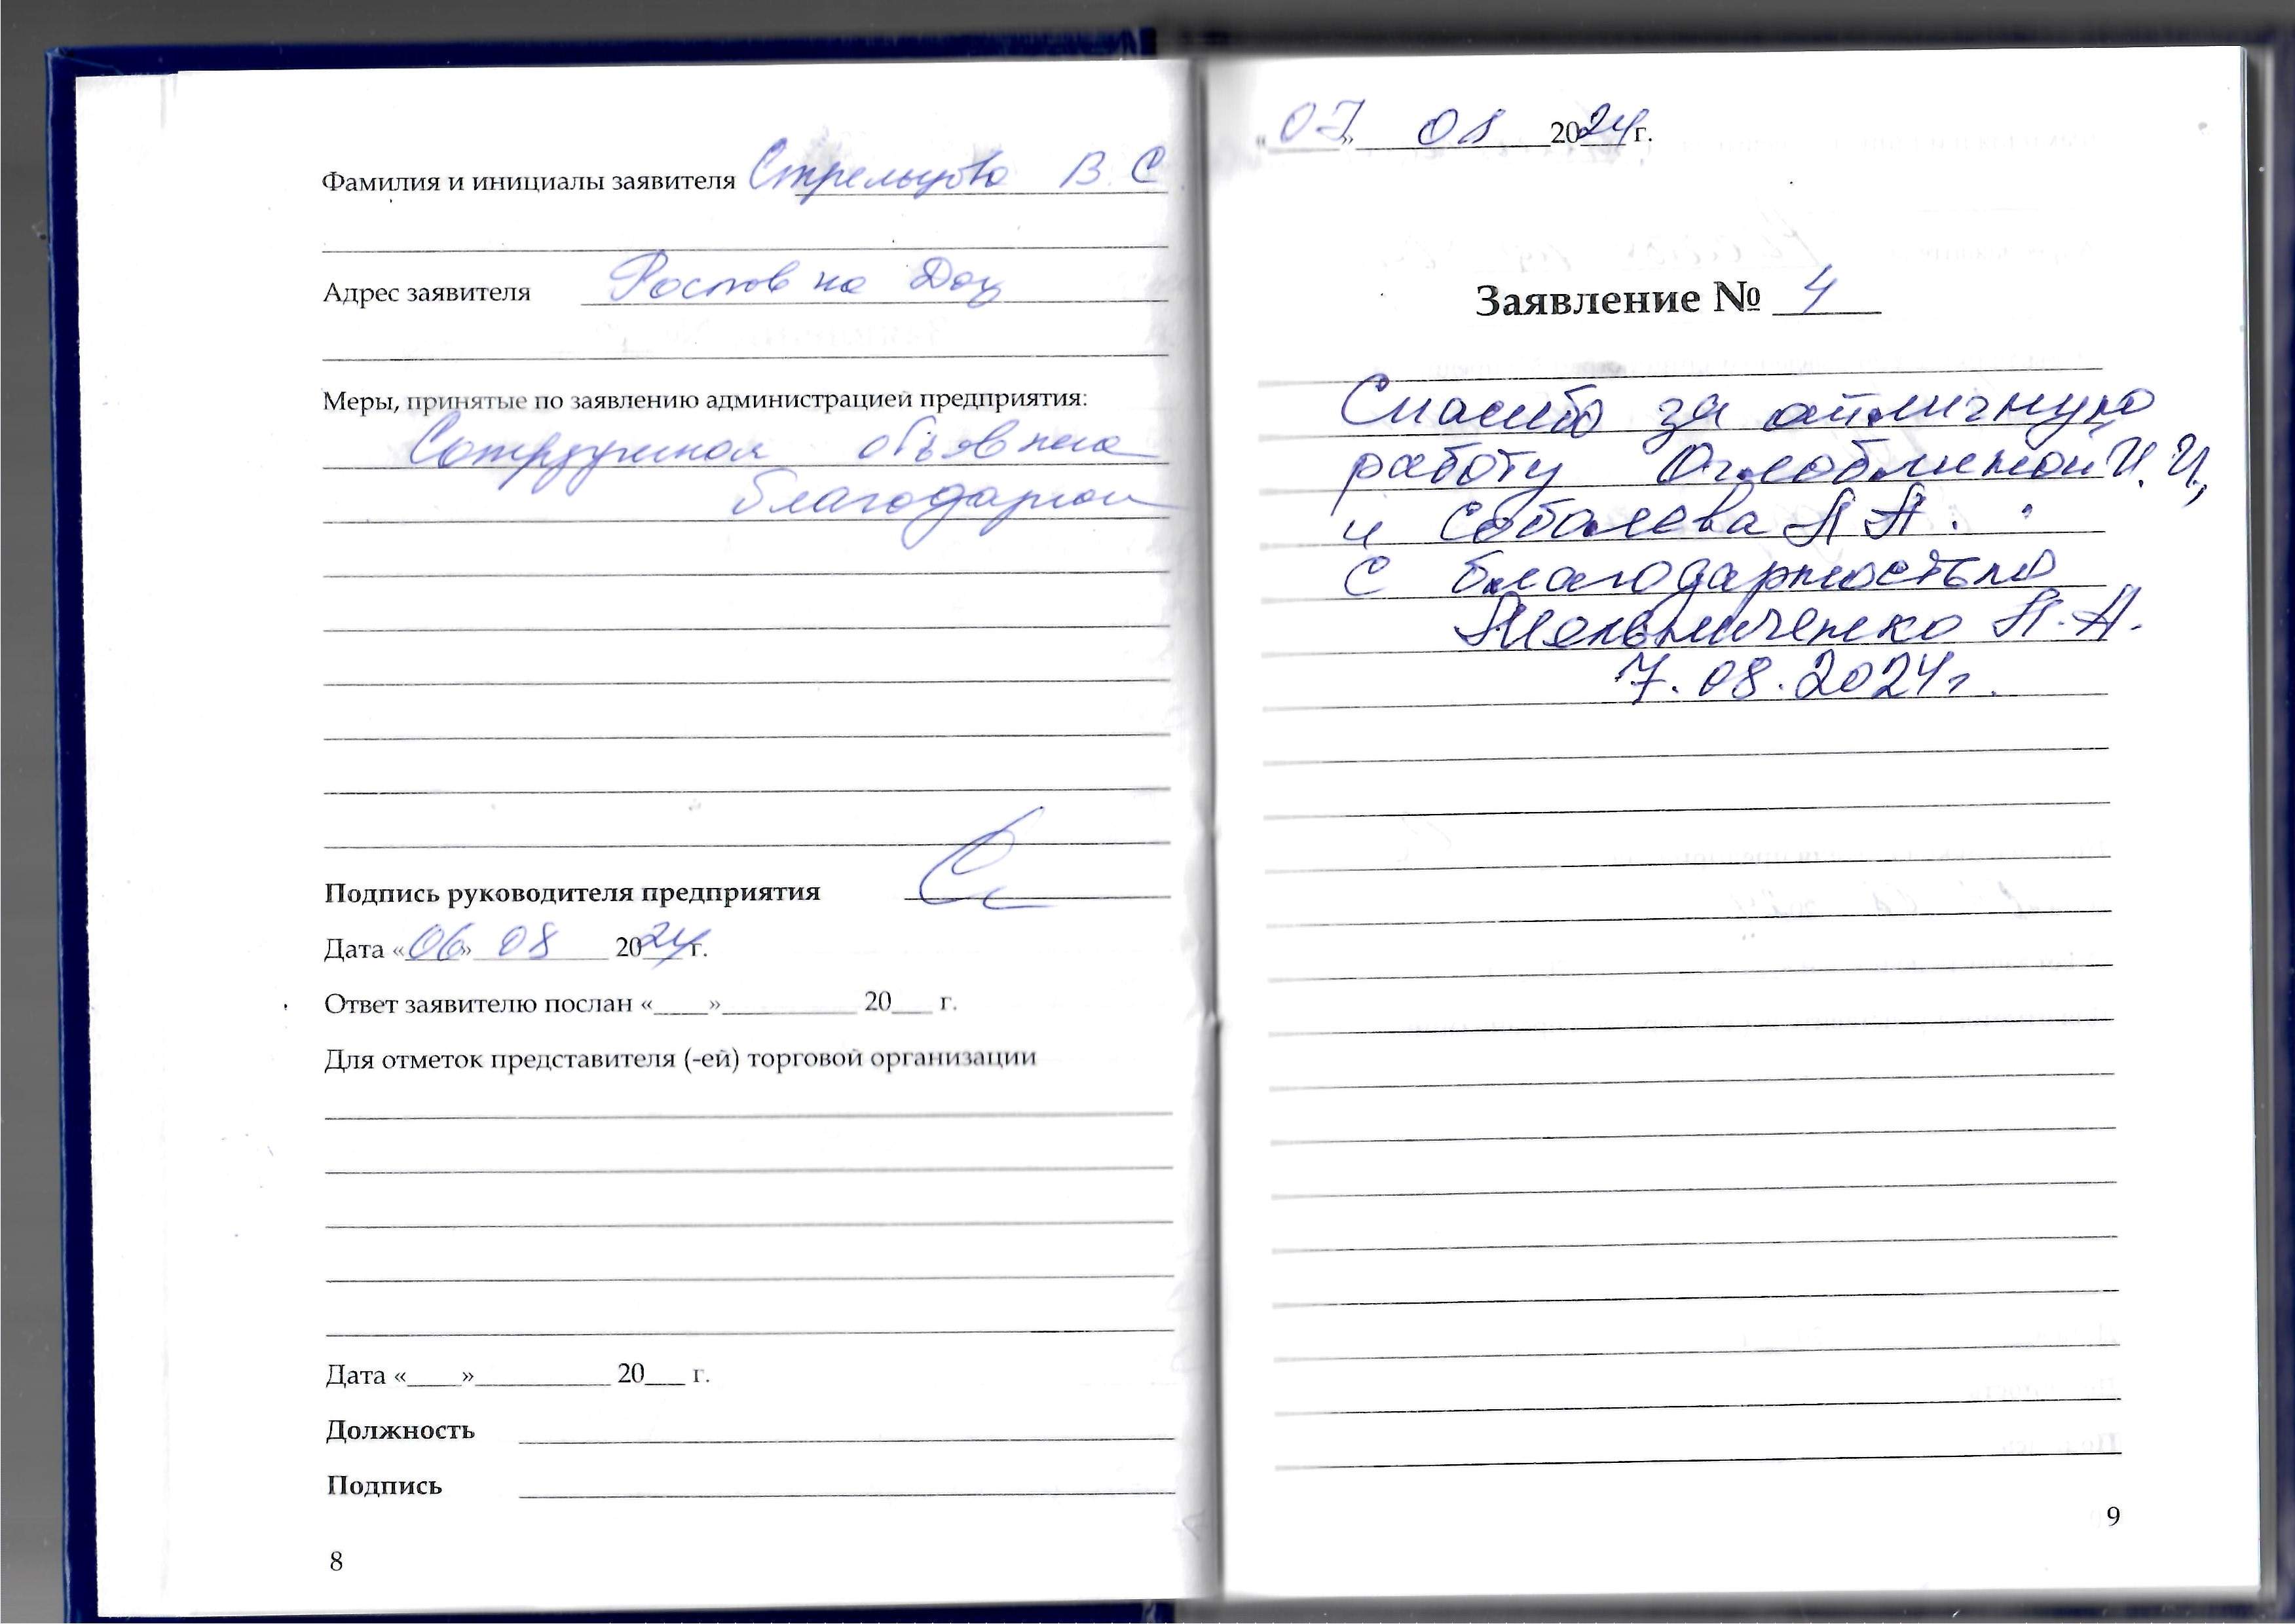 Фамилия и инициалы заявителя Стрельцова В С
Адрес заявителя Ростов на Дону
Меры, принятые по заявлению администрацией предприятия:
объявлена
Подпись руководителя предприятия
Дата «06» 08 2024 г.
Ответ заявителю послан «____»__________ 20___ г.
Для отметок представителя (-ей) торговой организации
Дата «____»__________ 20___ г.
Должность
Подпись
8
«07» 08 2024 г.
Заявление № 4
Спасибо за отличную
работу Оглоблиной И. И,
и Соболева А А.
С благодарностью
Мельниченко А. А.
7. 08. 2024 г.
9